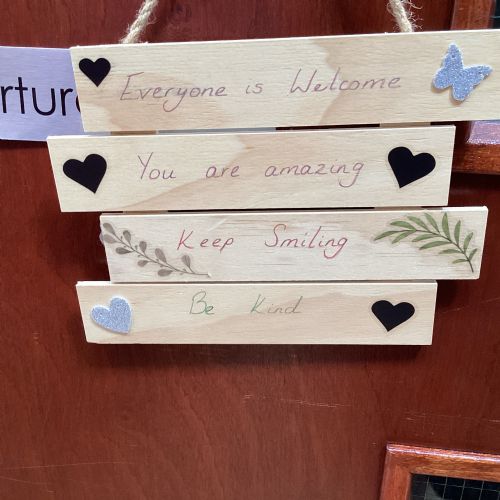 Everyone is Welcome
You are amazing
Keep Smiling
Be Kind